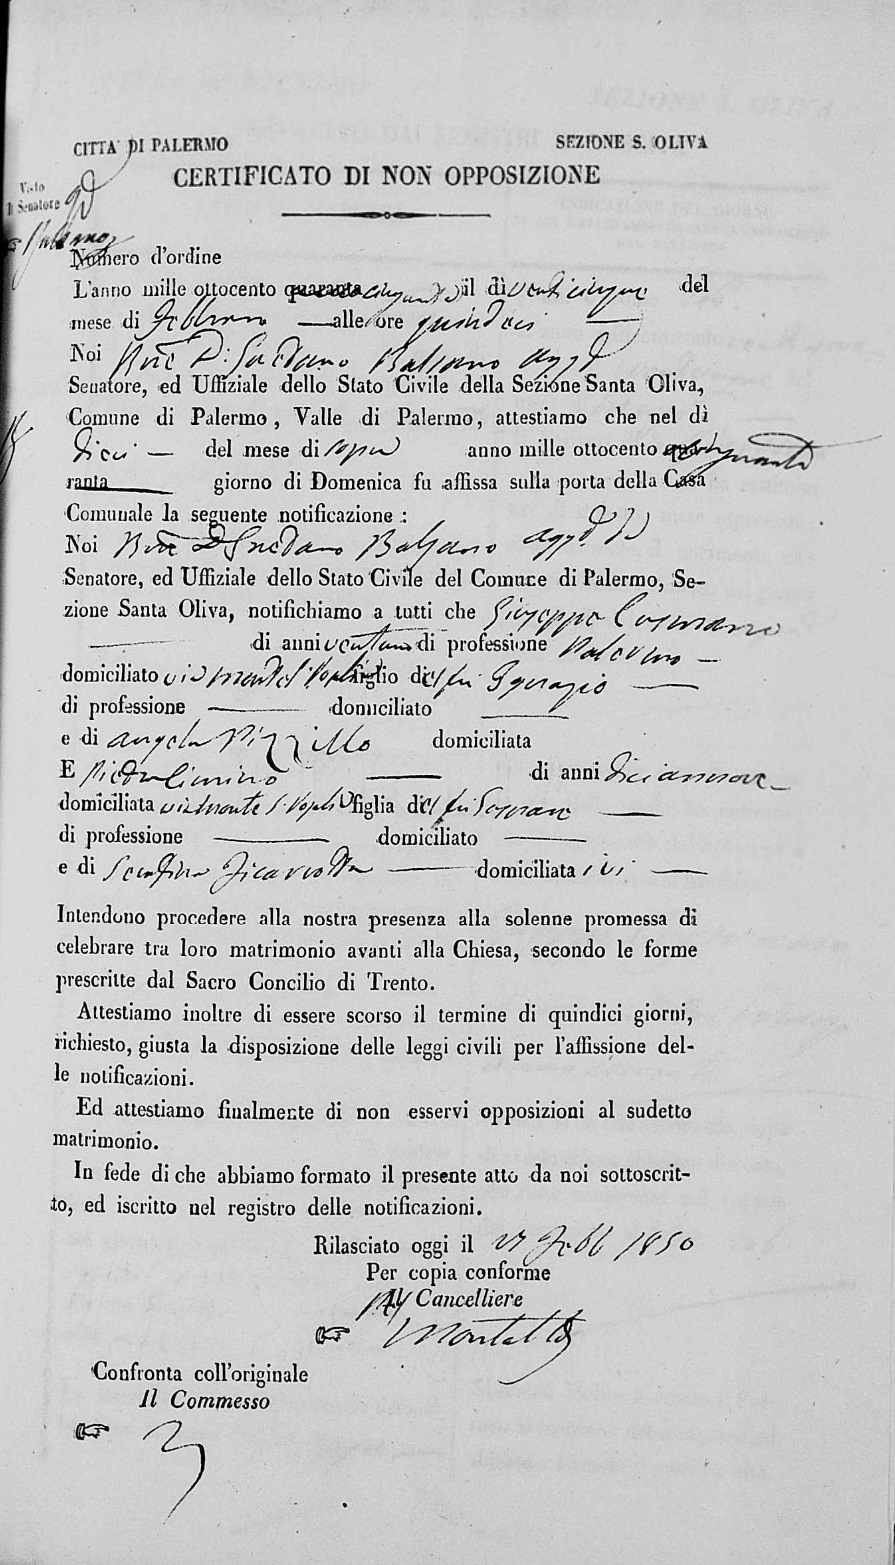 CITTA' DI PALERMO SEZIONE S. OLIVA
CERTIFICATO DI NON OPPOSIZIONE
Visto
Il Senatore
Numero d'ordine
L'anno mille ottocento quaranta cinquanta il dì venticinque del
mese di Febbraro alle ore quindeci
Noi D. Gaetano Balsano
Senatore, ed Uffiziale dello Stato Civile della Sezione Santa Oliva,
Comune di Palermo, Valle di Palermo, attestiamo che nel dì
dieci del mese di sopra anno mille ottocento cinquanta
ranta giorno di Domenica fu affissa sulla porta della Casa
Comunale la seguente notificazione :
Noi D. Gaetano Balsano
Senatore, ed Uffiziale dello Stato Civile del Comune di Palermo, Se-
zione Santa Oliva, notifichiamo a tutti che Giuseppe
di anni ventuno di professione
domiciliato via figlio del fu
di professione domiciliato
e di Angela Pizzillo domiciliata
E di anni diciannove
domiciliata via figlia del fu
di professione domiciliato
e di domiciliata ivi
Intendono procedere alla nostra presenza alla solenne promessa di
celebrare tra loro matrimonio avanti alla Chiesa, secondo le forme
prescritte dal Sacro Concilio di Trento.
Attestiamo inoltre di essere scorso il termine di quindici giorni,
richiesto, giusta la disposizione delle leggi civili per l'affissione del-
le notificazioni.
Ed attestiamo finalmente di non esservi opposizioni al sudetto
matrimonio.
In fede di che abbiamo formato il presente atto da noi sottoscrit-
to, ed iscritto nel registro delle notificazioni.
Rilasciato oggi il 27 Febb 1850
Per copia conforme
Il Cancelliere
Confronta coll'originale
Il Commesso